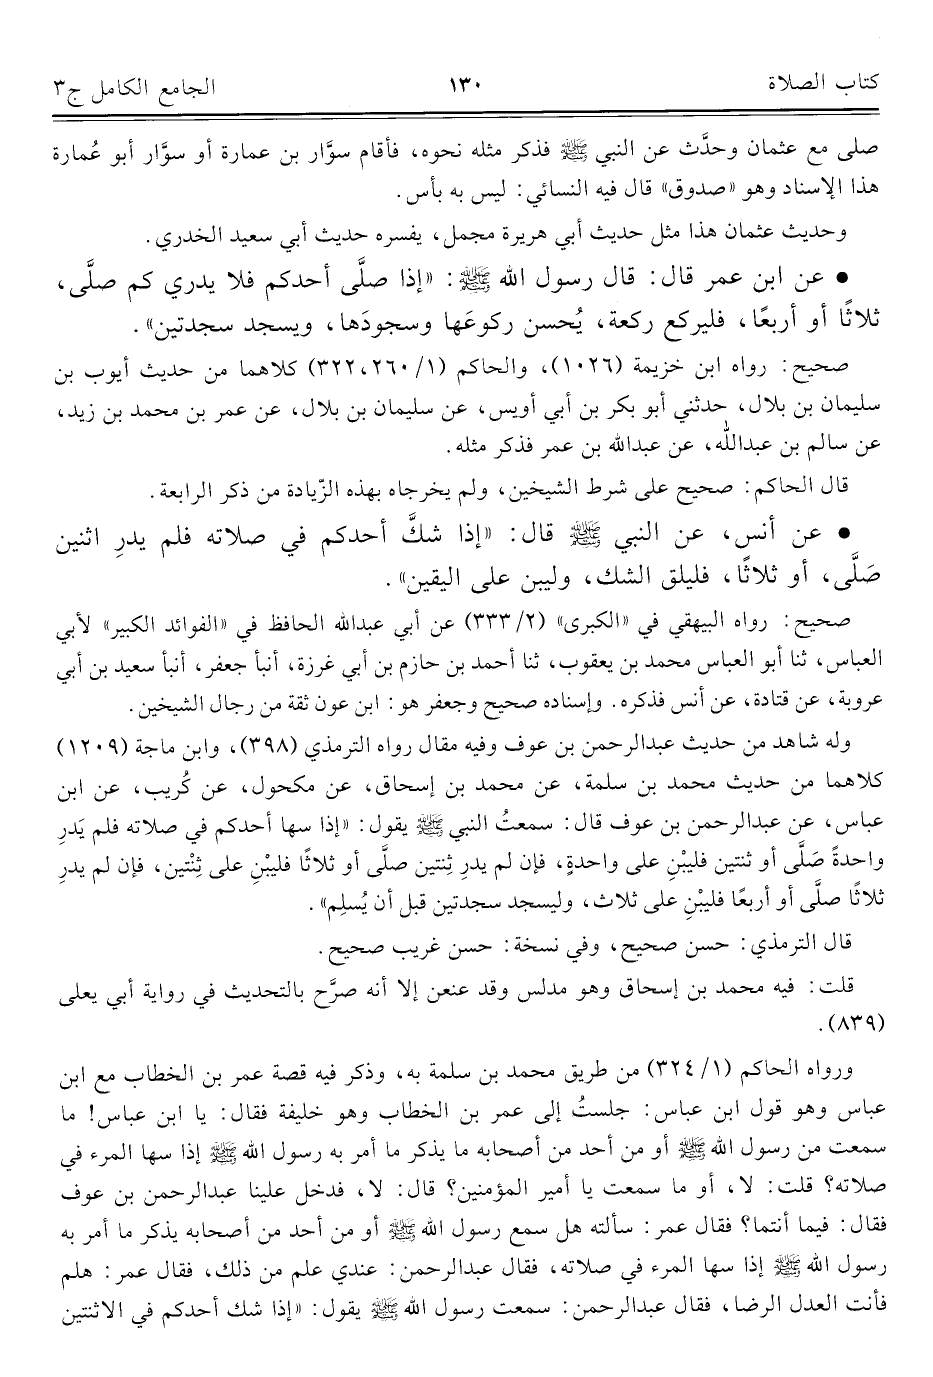 كتاب الصلاة ١٣٠ الجامع الكامل ج٣
صلى مع عثمان وحدَّث عن النبي ﷺ فذكر مثله نحوه، فأقام سوَّار بن عمارة أو سوَّار أبو عُمارة
هذا الإسناد وهو «صدوق» قال فيه النسائي: ليس به بأس.
وحديث عثمان هذا مثل حديث أبي هريرة مجمل، يفسره حديث أبي سعيد الخدري.
• عن ابن عمر قال: قال رسول الله ﷺ: «إذا صلَّى أحدكم فلا يدري كم صلَّى،
ثلاثًا أو أربعًا، فليركع ركعة، يُحسن ركوعَها وسجودَها، ويسجد سجدتين».
صحيح: رواه ابن خزيمة (١٠٢٦)، والحاكم (١/ ٢٦٠،٣٢٢) كلاهما من حديث أيوب بن
سليمان بن بلال، حدثني أبو بكر بن أبي أويس، عن سليمان بن بلال، عن عمر بن محمد بن زيد،
عن سالم بن عبدالله، عن عبدالله بن عمر فذكر مثله.
قال الحاكم: صحيح على شرط الشيخين، ولم يخرجاه بهذه الزّيادة من ذكر الرابعة.
• عن أنس، عن النبي ﷺ قال: «إذا شكَّ أحدكم في صلاته فلم يدرِ اثنين
صَلَّى، أو ثلاثًا، فليلق الشك، وليبن على اليقين».
صحيح: رواه البيهقي في «الكبرى» (٢/ ٣٣٣) عن أبي عبدالله الحافظ في «الفوائد الكبير» لأبي
العباس، ثنا أبو العباس محمد بن يعقوب، ثنا أحمد بن حازم بن أبي غرزة، أنبأ جعفر، أنبأ سعيد بن أبي
عروبة، عن قتادة، عن أنس فذكره. وإسناده صحيح وجعفر هو: ابن عون ثقة من رجال الشيخين.
وله شاهد من حديث عبدالرحمن بن عوف وفيه مقال رواه الترمذي (٣٩٨)، وابن ماجة (١٢٠٩)
كلاهما من حديث محمد بن سلمة، عن محمد بن إسحاق، عن مكحول، عن كُريب، عن ابن
عباس، عن عبدالرحمن بن عوف قال: سمعتُ النبي ﷺ يقول: «إذا سها أحدكم في صلاته فلم يَدرِ
واحدةً صَلَّى أو ثنتين فليبْنِ على واحدةٍ، فإن لم يدرِ ثِنتين صلَّى أو ثلاثًا فليبْنِ على ثِنْتين، فإن لم يدرِ
ثلاثًا صلَّى أو أربعًا فليبْنِ على ثلاث، وليسجد سجدتين قبل أن يُسلِم».
قال الترمذي: حسن صحيح، وفي نسخة: حسن غريب صحيح.
قلت: فيه محمد بن إسحاق وهو مدلس وقد عنعن إلا أنه صرَّح بالتحديث في رواية أبي يعلى
(٨٣٩).
ورواه الحاكم (١/ ٣٢٤) من طريق محمد بن سلمة به، وذكر فيه قصة عمر بن الخطاب مع ابن
عباس وهو قول ابن عباس: جلستُ إلى عمر بن الخطاب وهو خليفة فقال: يا ابن عباس! ما
سمعت من رسول الله ﷺ أو من أحد من أصحابه ما يذكر ما أمر به رسول الله ﷺ إذا سها المرء في
صلاته؟ قلت: لا، أو ما سمعت يا أمير المؤمنين؟ قال: لا، فدخل علينا عبدالرحمن بن عوف
فقال: فيما أنتما؟ فقال عمر: سألته هل سمع رسول الله ﷺ أو من أحد من أصحابه يذكر ما أمر به
رسول الله ﷺ إذا سها المرء في صلاته، فقال عبدالرحمن: عندي علم من ذلك، فقال عمر: هلم
فأنت العدل الرضا، فقال عبدالرحمن: سمعت رسول الله ﷺ يقول: «إذا شك أحدكم في الاثنتين